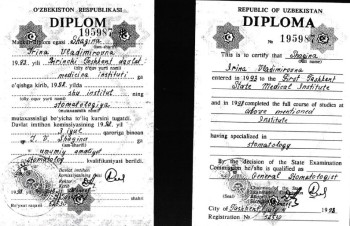 O'ZBEKISTON RESPUBLIKASI
DIPLOM
№ 195987
Mazkur diplom egasi Shagina
Irina Vladimirovna
1993 yilda Birinchi Toshkent davlat
(oliy o'quv yurti nomi)
medicina instituti ga
o'qishga kirib, 1998 yilda
shu institut ning
(oliy o'quv yurti nomi)
stomatologiya
mutaxassisligi bo'yicha to'liq kursini tugatdi.
Davlat imtihon komissiyasining 1998 yil
3 iyul qaroriga binoan
I. V. Shagina
umumiy amaliyot
stomatolog kvalifikatsiyasi berildi.
Davlat imtihon
komissiyasining raisi
Rektor
REPUBLIC OF UZBEKISTAN
DIPLOMA
№ 195987
This is to certify that Shagina
Irina Vladimirovna
entered in 1993 to the First Tashkent
State Medical Institute
and in 1998 completed the full course of studies at
above mentioned
Institute
having specialized in
stomatology
By the decision of the State Examination
Commission he/she is qualified as
General Stomatologist
Chairman of the State
City of Tashkent 1998
Registration №